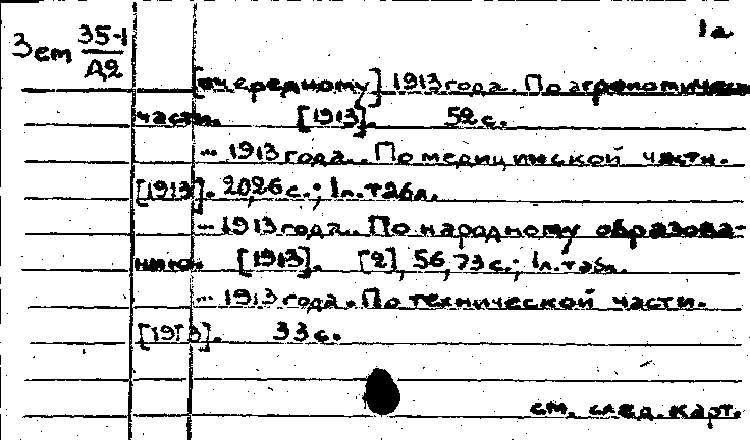 1а
Зет 35-1
Д2
[очередному] 1913 года. По агрономической
части. [1913]. 52 с.
... 1913 года.. По медицинской части.
[1913]. 20,26 с.; 1 л. табл.
... 1913 года.. По народному образова-
нию. [1913]. [2], 56, 73 с.; 1 л. табл.
... 1913 года. По технической части.
[1913]. 33 с.
см. след. карт.